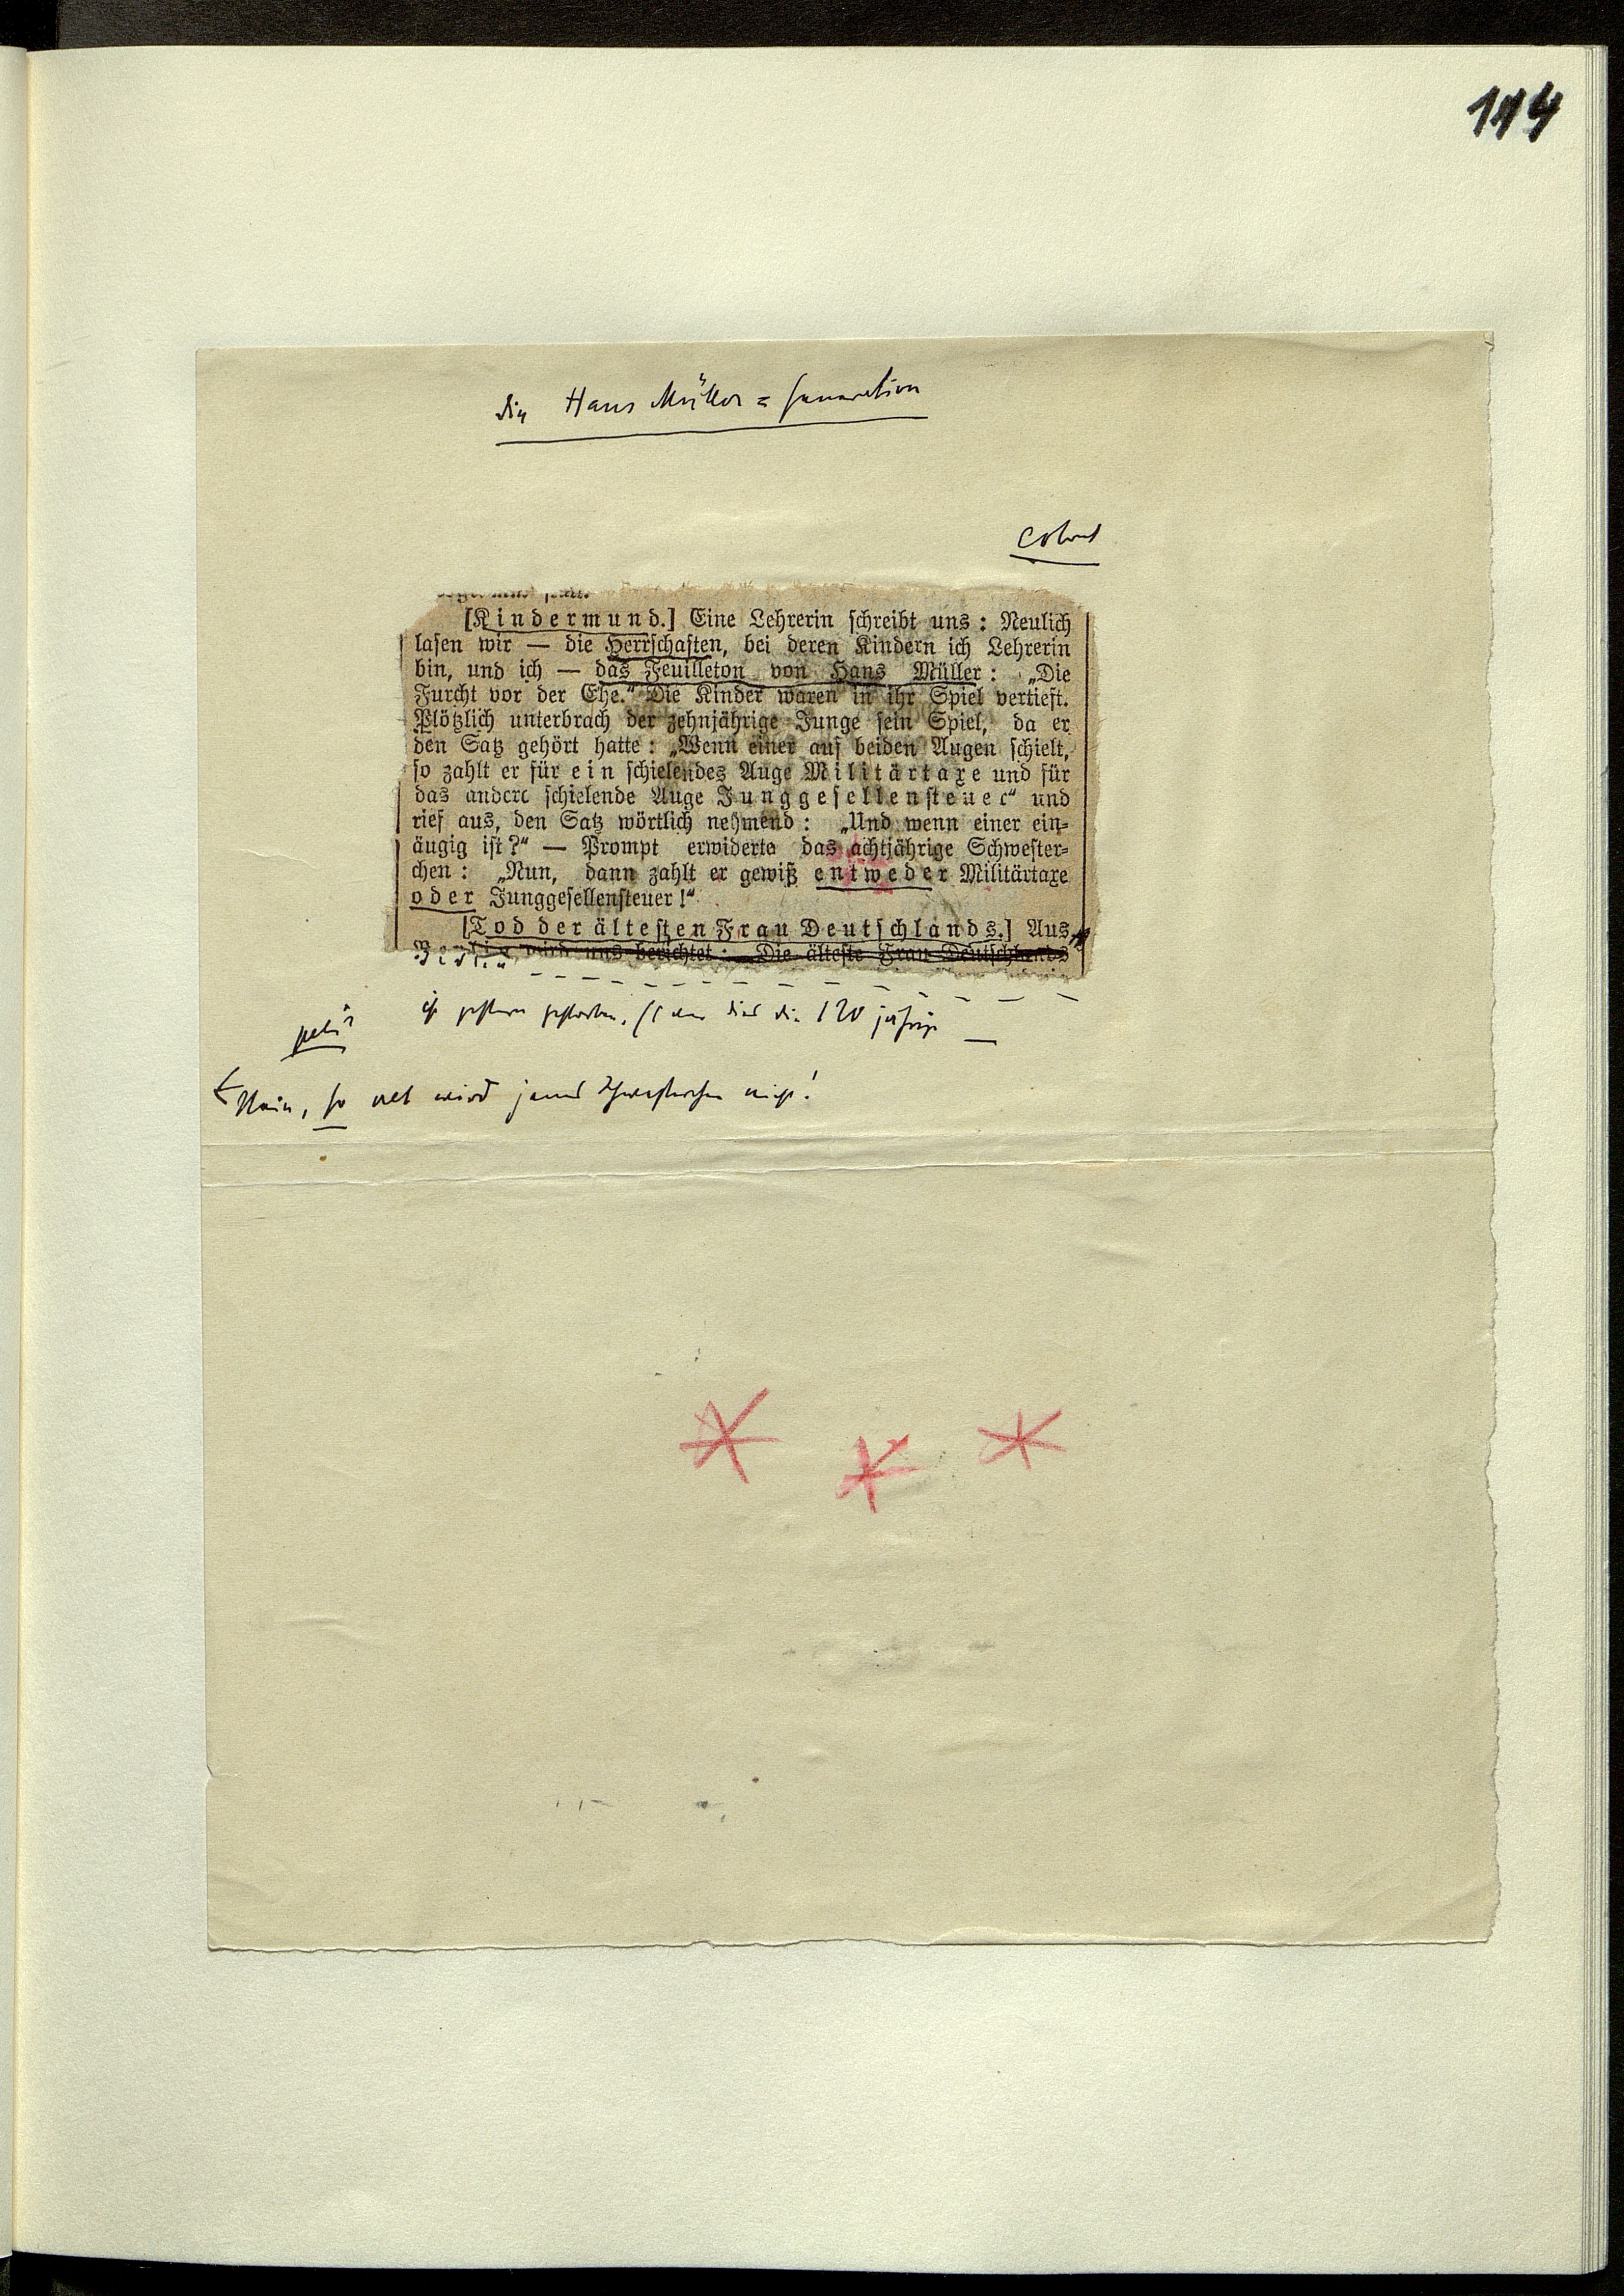 114
die Hans Müller = Generation
[Kindermund.] Eine Lehrerin schreibt uns: Neulich
lasen wir — die Herrschaften, bei deren Kindern ich Lehrerin
bin, und ich — das Feuilleton von Hans Müller: „Die
Furcht vor der Ehe.“ Die Kinder waren in ihr Spiel vertieft.
Plötzlich unterbrach der zehnjährige Junge sein Spiel, da er
den Satz gehört hatte: „Wenn einer auf beiden Augen schielt,
so zahlt er für ein schielendes Auge Militärtaxe und für
das andere schielende Auge Junggesellensteuer“ und
rief aus, den Satz wörtlich nehmend: „Und wenn einer ein=
äugig ist?“ — Prompt erwiderte das achtjährige Schwester=
chen: „Nun, dann zahlt er gewiß entweder Militärtaxe
oder Junggesellensteuer!“
[Tod der ältesten Frau Deutschlands.] Aus
Berlin wird uns berichtet: Die älteste Frau Deutschlands
ist gestern gestorben. die 120 jährige —
Nein, so alt wird jenes Schwesterchen nicht!